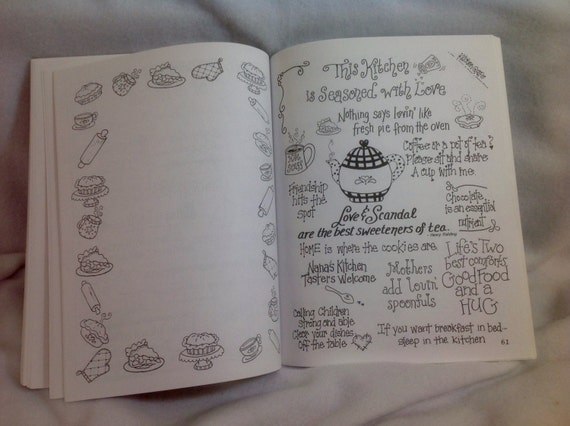 This Kitchen
is Seasoned with Love
Nothing says lovin' like
fresh pie from the oven
Coffee or a pot of tea!
Please sit and share
A cup with me.
Friendship
hits the
spot
Chocolate
is an essential
nutrient
Love & Scandal
are the best sweeteners of tea.
HOME is where the cookies are.
Nana's Kitchen
Tasters Welcome
Mothers
add lovin'
spoonfuls
Life's Two
best comforts
Good Food
and a
HUG
Calling Children
strong and able
Clear your dishes
Off the table
If you want breakfast in bed--
sleep in the kitchen
61